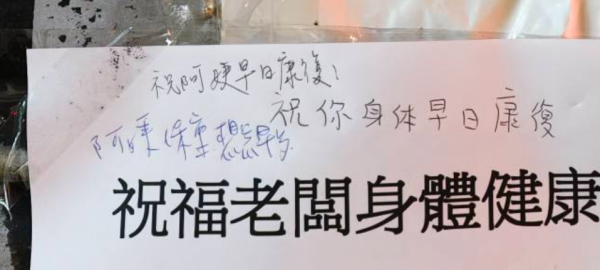 祝阿姨早日康復!
祝你身体早日康復
阿姨保重
祝福老闆身體健康